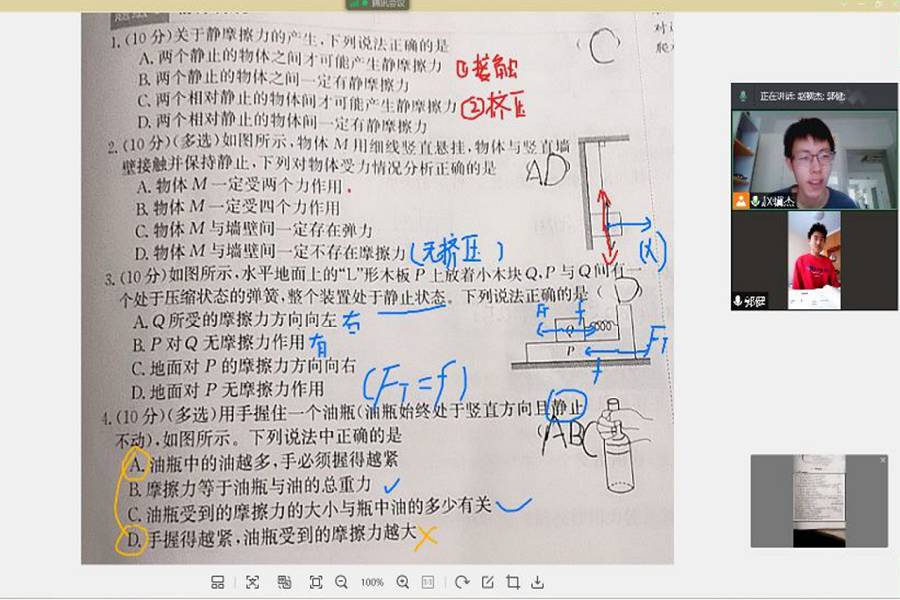 腾讯会议
1.(10分)关于静摩擦力的产生,下列说法正确的是
( C
A.两个静止的物体之间才可能产生静摩擦力
①接触
B.两个静止的物体之间一定有静摩擦力
C.两个相对静止的物体间才可能产生静摩擦力
②挤压
D.两个相对静止的物体间一定有静摩擦力
2.(10分)(多选)如图所示,物体M用细线竖直悬挂,物体与竖直墙
壁接触并保持静止,下列对物体受力情况分析正确的是
AD
A.物体M一定受两个力作用
B.物体M一定受四个力作用
C.物体M与墙壁间一定存在弹力
D.物体M与墙壁间一定不存在摩擦力
(无挤压)
(X)
3.(10分)如图所示,水平地面上的“L”形木板P上放着小木块Q,P与Q间有一
个处于压缩状态的弹簧,整个装置处于静止状态。下列说法正确的是( D )
A.Q所受的摩擦力方向向左
右
B.P对Q无摩擦力作用
有
C.地面对P的摩擦力方向向右
D.地面对P无摩擦力作用
(FT=f)
Q
P
f
FT
f
4.(10分)(多选)用手握住一个油瓶(油瓶始终处于竖直方向且静止
不动),如图所示。下列说法中正确的是
(ABC
A.油瓶中的油越多,手必须握得越紧
B.摩擦力等于油瓶与油的总重力
C.油瓶受到的摩擦力的大小与瓶中油的多少有关
D.手握得越紧,油瓶受到的摩擦力越大
100%
1:1
正在讲话: